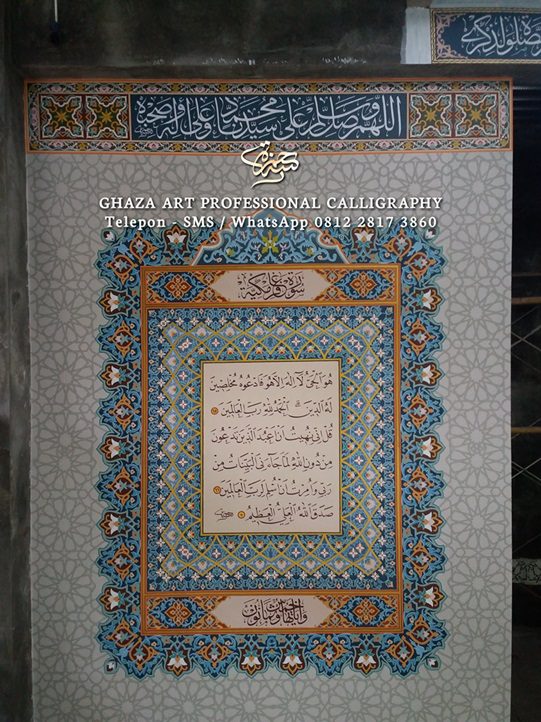 اللهم صل وسلم على سيدنا محمد وعلى اله وصحبه
GHAZA ART PROFESSIONAL CALLIGRAPHY
Telepon - SMS / WhatsApp 0812 2817 3860
سورة غافر مكية
هو الحي لا اله الا هو فادعوه مخلصين
له الدين ۗ الحمد لله رب العالمين
قل اني نهيت ان اعبد الذين تدعون
من دون الله لما جاءني البينات من
ربي وامرت ان اسلم لرب العالمين
صدق الله العلي العظيم
وآياتها خمس وثمانون